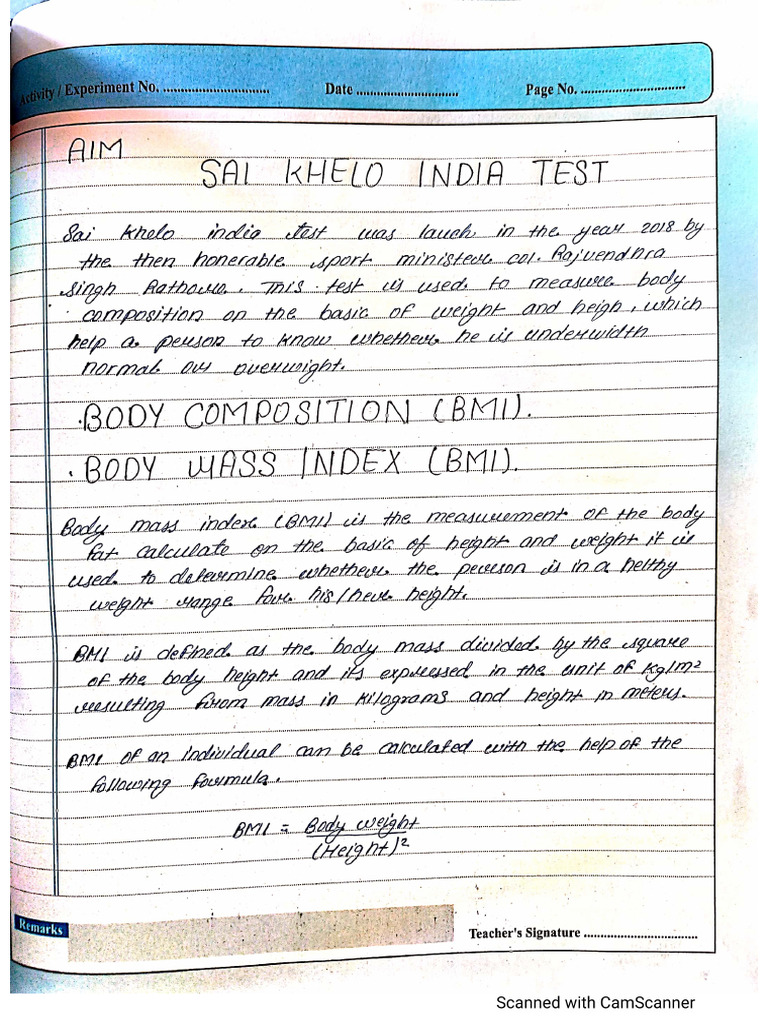 Activity / Experiment No. ............................
Date ............................
Page No. ............................
AIM
SAI KHELO INDIA TEST
Sai khelo india test was lauch in the year 2018 by
the then honerable sport minister col. Rajvendhra
Singh Rathore. This test is used to measure body
composition on the basic of weight and heigh, which
help a person to know whether he is underwidth
normal or overwight.
·BODY COMPOSITION (BMI).
·BODY MASS INDEX (BMI).
Body mass index (BMI) is the measurement of the body
fat calculate on the basic of height and weight it is
used to determine whether the person is in a helthy
weight range for his/her height.
BMI is defined as the body mass divided by the square
of the body height and its expressed in the unit of kg/m²
resulting from mass in kilograms and height in meters.
BMI of an individual can be calculated with the help of the
following formula.
BMI = Body weight
(Height)²
Remarks
Teacher's Signature ..............................
Scanned with CamScanner